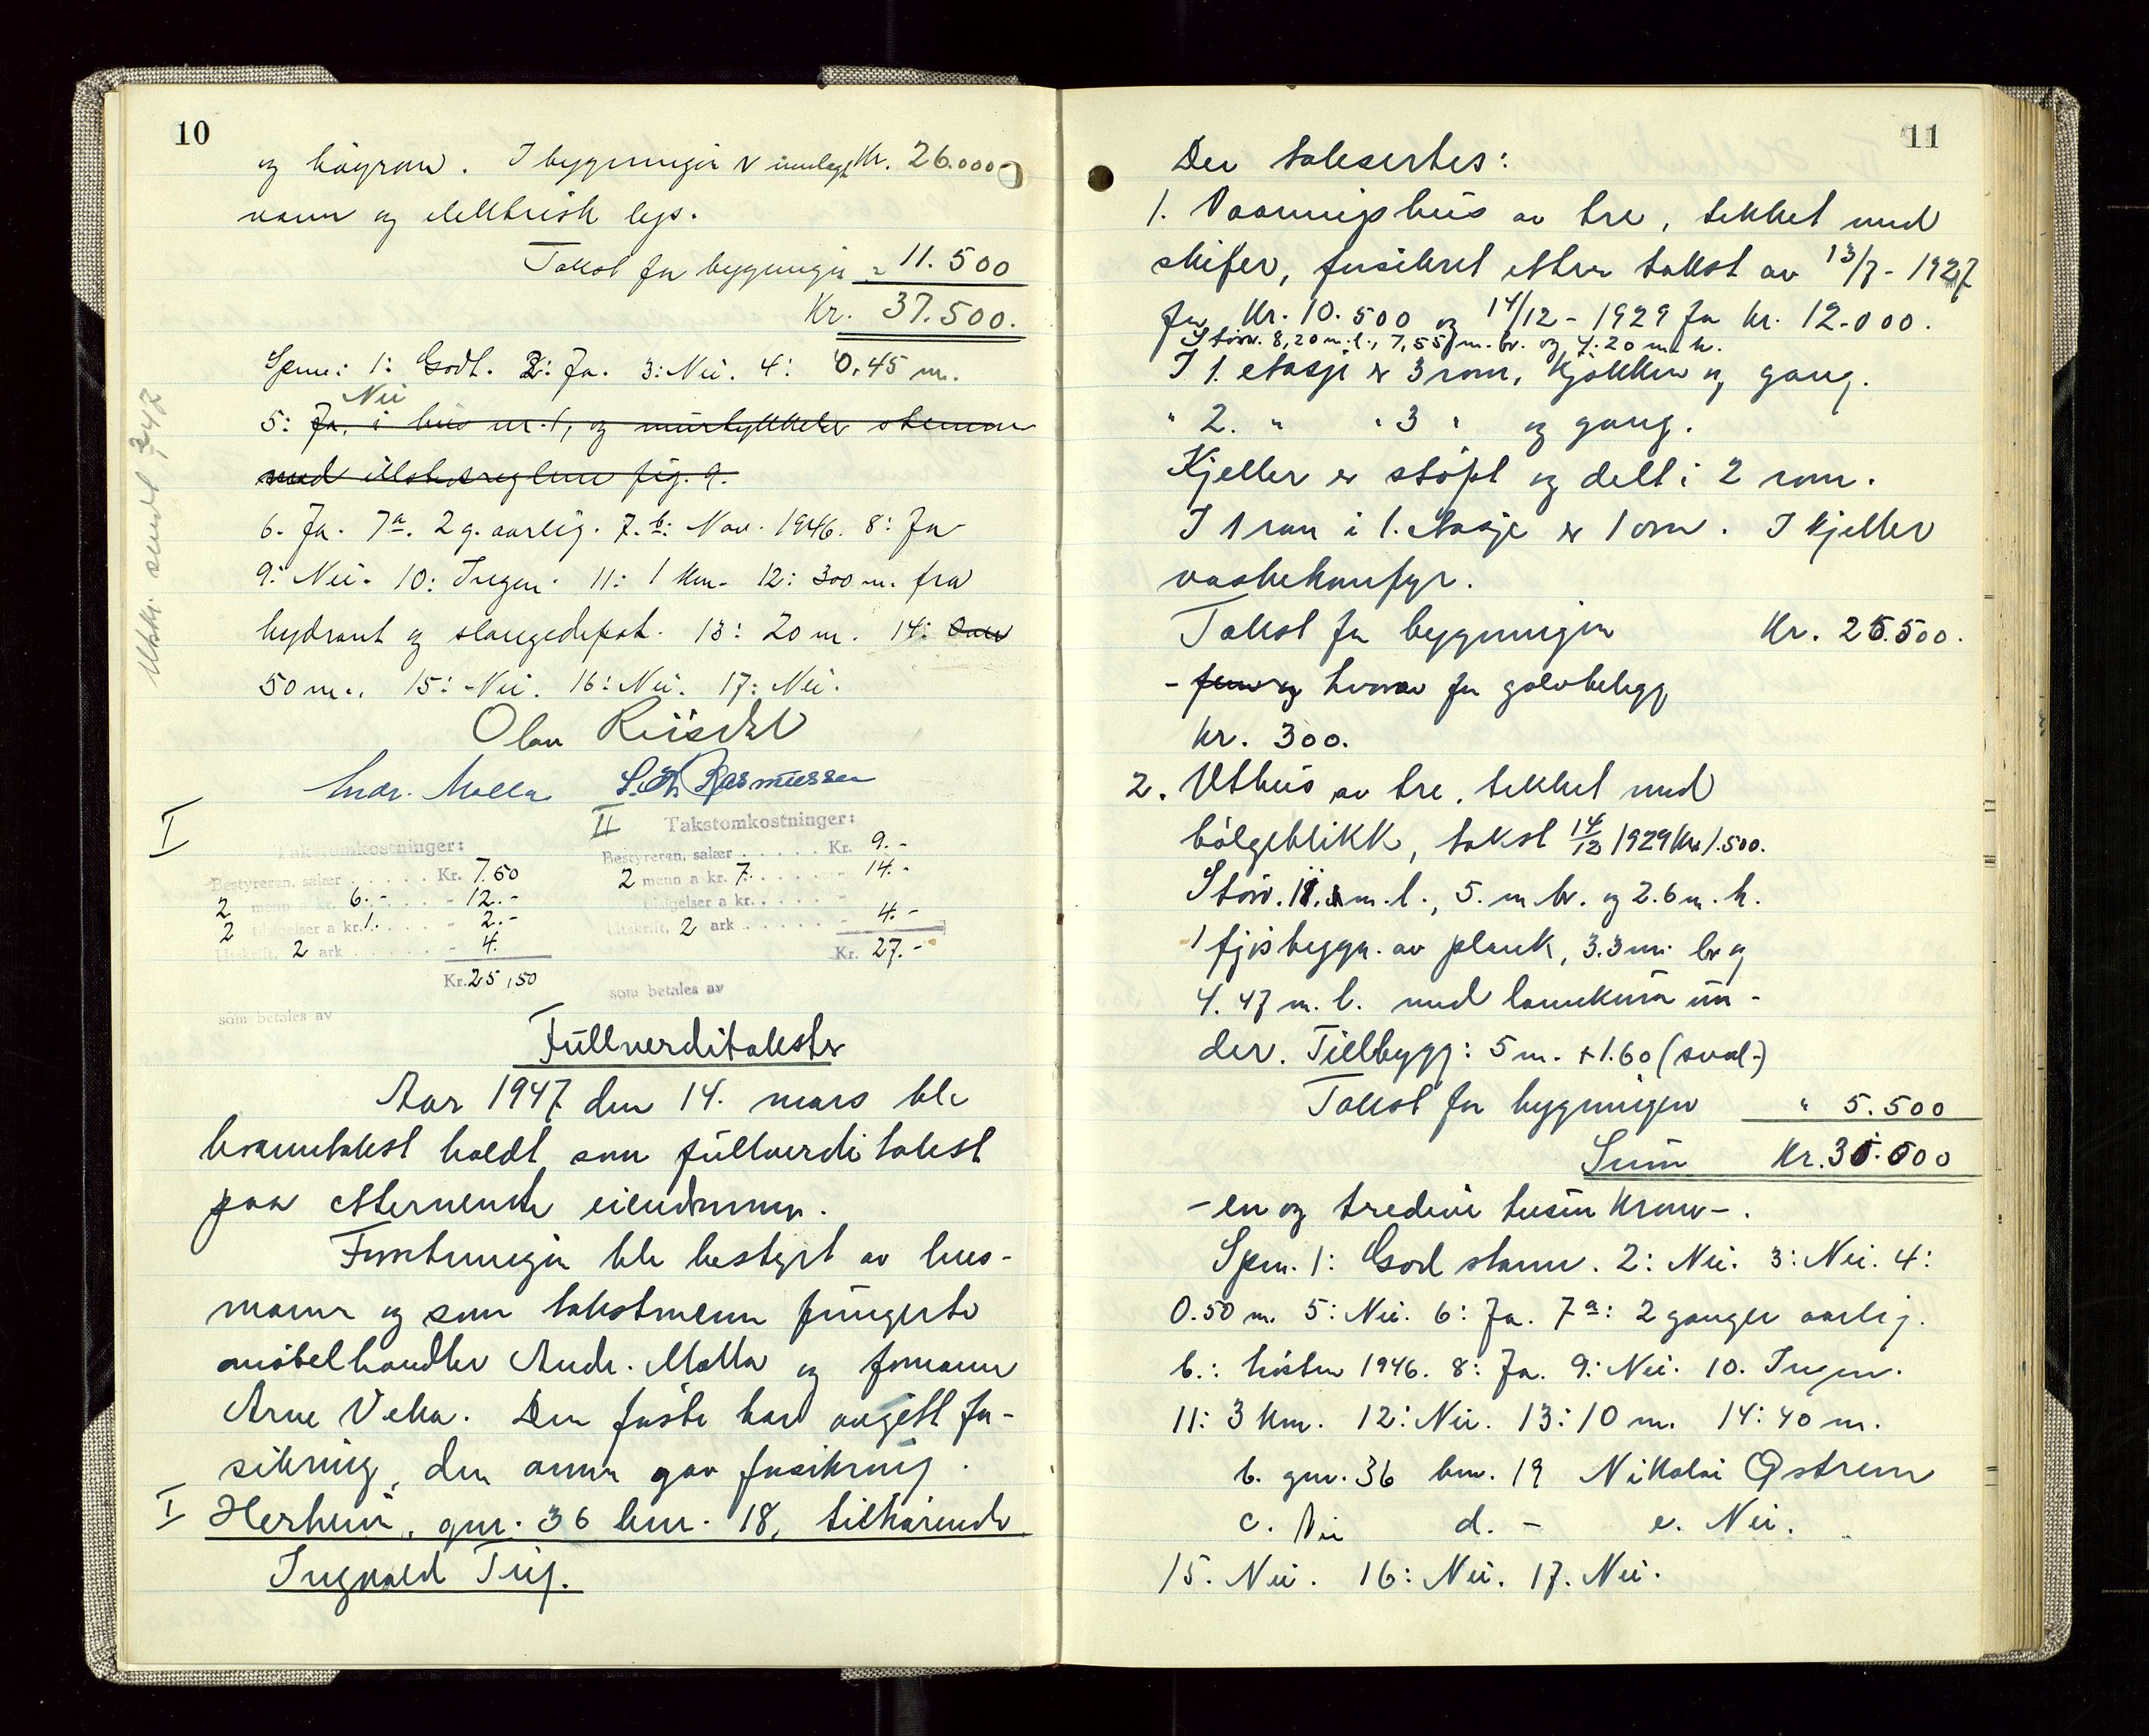 10
og höyrom. I bygningen er innlagt Kr. 26.000
vann og elektrisk lys.
Takst for bygningen " 11.500
Kr. 37.500.
Spm: 1: Godt. 2: Ja. 3: Nei. 4: 0,45 m.
Nei
5: Ja, i hus nr. 1, og murtykkelse stemmer
med
fig. 9.
6. Ja. 7a. 2 g. aarlig. 7. b: Nov. 1946. 8: Ja
9: Nei. 10: Ingen. 11: 1 km. 12: 300 m. fra
hydrant og slangedepot. 13: 20 m. 14:
50 m.. 15: Nei. 16: Nei. 17: Nei.
Utskr. sendt
Olav
Andr. Malla Rasmussen
I
Takstomkostninger:
Bestyreren, salær . . . . . Kr. 7.50
2 menn a kr. 6.- . . . - 12.-
2 tilsigelser a kr. 1. . . . - 2.-
Utskrift, 2 ark . . . . . - 4.
Kr. 25,50
som betales av
II Takstomkostninger:
Bestyreren, salær . . . . . Kr. 9.-
2 menn a kr. 7. . . . . - 14.-
tilsigelser a kr. . . . . -
Utskrift, 2 ark . . . . . - 4.-
Kr. 27.-
som betales av
Fullverditakster
Aar 1947 den 14. mars ble
branntakst holdt som fullverditakst
paa etternevnte eiendommer.
Forretningen ble bestyrt av lens-
mann og som takstmenn fungerte
möbelhandler Andr. Malla og formann
Arne Veka. Den förste har avgitt for-
sikring, den annen gav forsikring.
I Herheim, gnr. 36 bnr. 18, tilhörende
Ingvald Tuj.
11
Der takseertes:
1. Vaaningshus av tre, tekket med
skifer, forsikret etter takst av 13/7 - 1927
for Kr. 10.500 og 14/12 - 1929 for kr. 12.000.
Störr. 8,20 m. l., 7,55 m. br. og 4.20 m. h.
I 1. etasje er 3 rom, kjökken og gang.
" 2. " " 3 " og gang.
Kjeller er stöpt og delt i 2 rom.
I 1 rom i 1. etasje er 1 ovn. I kjeller
vaskekomfyr.
Takst for bygningen Kr. 25.500.
- hvorav for golvbelegg
kr. 300.
2. Uthus av tre, tekket med
bölgeblikk, takst 14/12 1929 Kr. 1.500.
Störr. 11. m. l., 5. m. br. og 2.6 m. h.
1 fjösbygn. av plank, 3.3 m. br og
4.47 m. l. med landkum un-
der. Tilbygg: 5 m. + 1.60 (sval-)
Takst for bygningen " 5.500
Sum Kr. 31.000
- en og tredve tusen kroner -.
Spm. 1: God stann. 2: Nei. 3: Nei. 4:
0.50 m. 5: Nei. 6: Ja. 7a: 2 ganger aarlig.
b.: hösten 1946. 8: Ja. 9: Nei. 10. Ingen.
11: 3 km. 12: Nei. 13: 10 m. 14: 40 m.
b. gnr. 36 bnr. 19 Nikolai Østrem
c. Nei d. - e. Nei.
15. Nei. 16: Nei. 17. Nei.